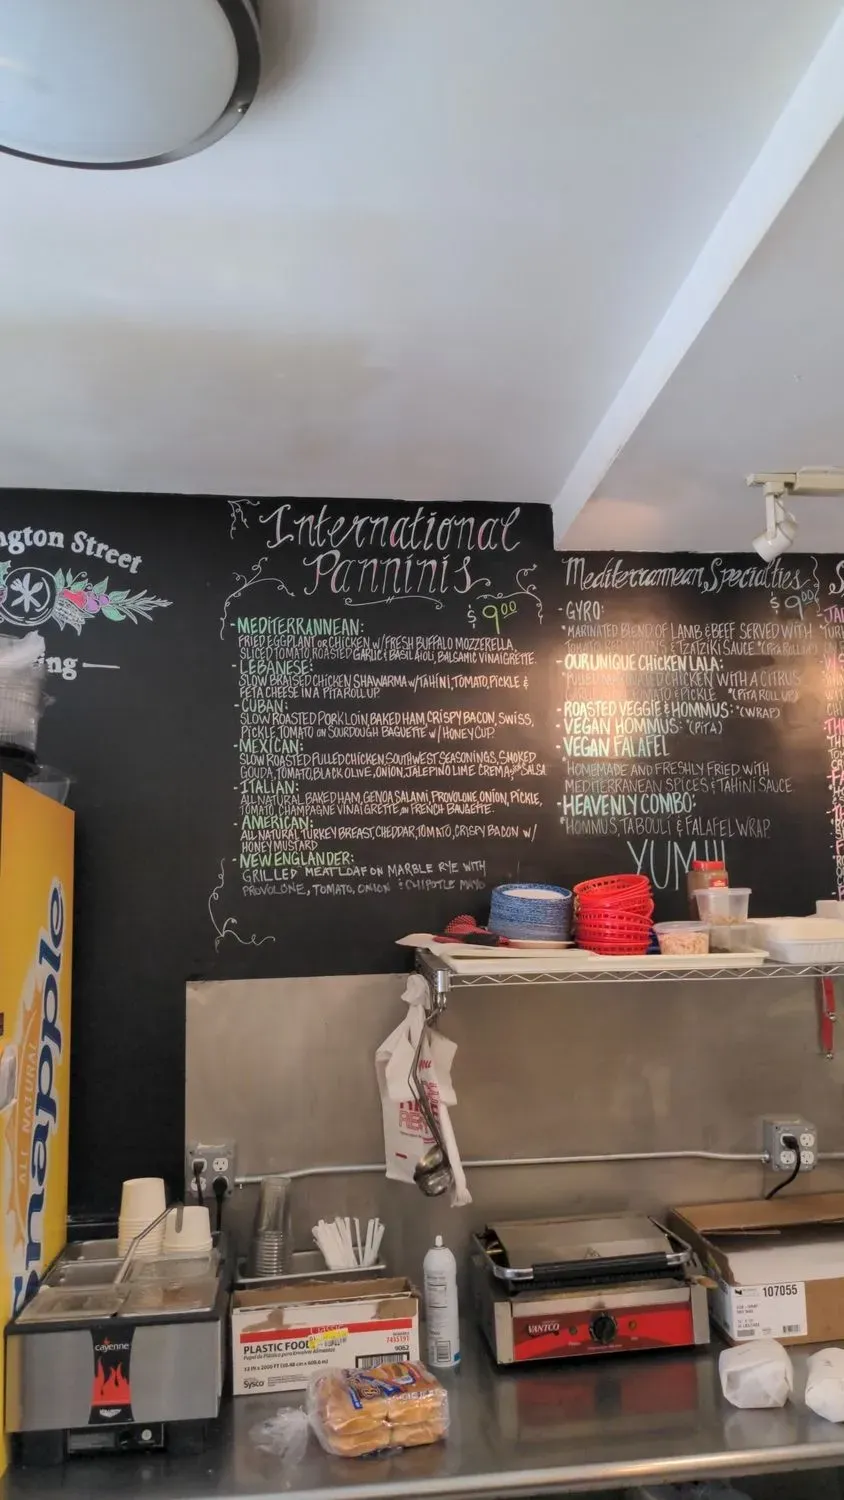 ngton Street
ng
International
Panninis
$9.00
- MEDITERRANNEAN:
FRIED EGGPLANT OR CHICKEN W/ FRESH BUFFALO MOZZERELLA,
SLICED TOMATO ROASTED GARLIC & BASIL AIOLI, BALSAMIC VINAIGRETTE.
- LEBANESE:
SLOW BRAISED CHICKEN SHAWARMA w/ TAHINI, TOMATO, PICKLE &
FETA CHEESE IN A PITA ROLL UP.
- CUBAN:
SLOW ROASTED PORK LOIN, BAKED HAM, CRISPY BACON, SWISS,
PICKLE, TOMATO ON SOURDOUGH BAGUETTE W/ HONEY CUP.
- MEXICAN:
SLOW ROASTED PULLED CHICKEN, SOUTHWEST SEASONINGS, SMOKED
GOUDA, TOMATO, BLACK OLIVE, ONION, JALEPINO LIME CREMA, SALSA
- ITALIAN:
ALL NATURAL BAKED HAM, GENOA SALAMI, PROVOLONE, ONION, PICKLE,
TOMATO, CHAMPAGNE VINAIGRETTE, ON FRENCH BAUGETTE.
- AMERICAN:
ALL NATURAL TURKEY BREAST, CHEDDAR, TOMATO, CRISPY BACON W/
HONEY MUSTARD
- NEW ENGLANDER:
GRILLED MEATLOAF ON MARBLE RYE WITH
PROVOLONE, TOMATO, ONION & CHIPOTLE MAYO
Mediterramean Specialties
$9.00
- GYRO:
*MARINATED BLEND OF LAMB & BEEF SERVED WITH
TOMATO, RED ONIONS & TZATZIKI SAUCE *(PITA ROLL UP)
- OUR UNIQUE CHICKEN LALA:
PULLED CHICKEN WITH A CITRUS
TOMATO & PICKLE *(PITA ROLL UP)
- ROASTED VEGGIE & HOMMUS: *(WRAP)
- VEGAN HOMMUS: *(PITA)
- VEGAN FALAFEL
*HOMEMADE AND FRESHLY FRIED WITH
MEDITERRANEAN SPICES & TAHINI SAUCE
- HEAVENLY COMBO:
*HOMMUS, TABOULI & FALAFEL WRAP.
YUM!!!
ALL NATURAL
Snapple
cayenne
Classic
PLASTIC FOOD
7455191
9062
12 IN x 2000 FT
Sysco
VANTCO
107055